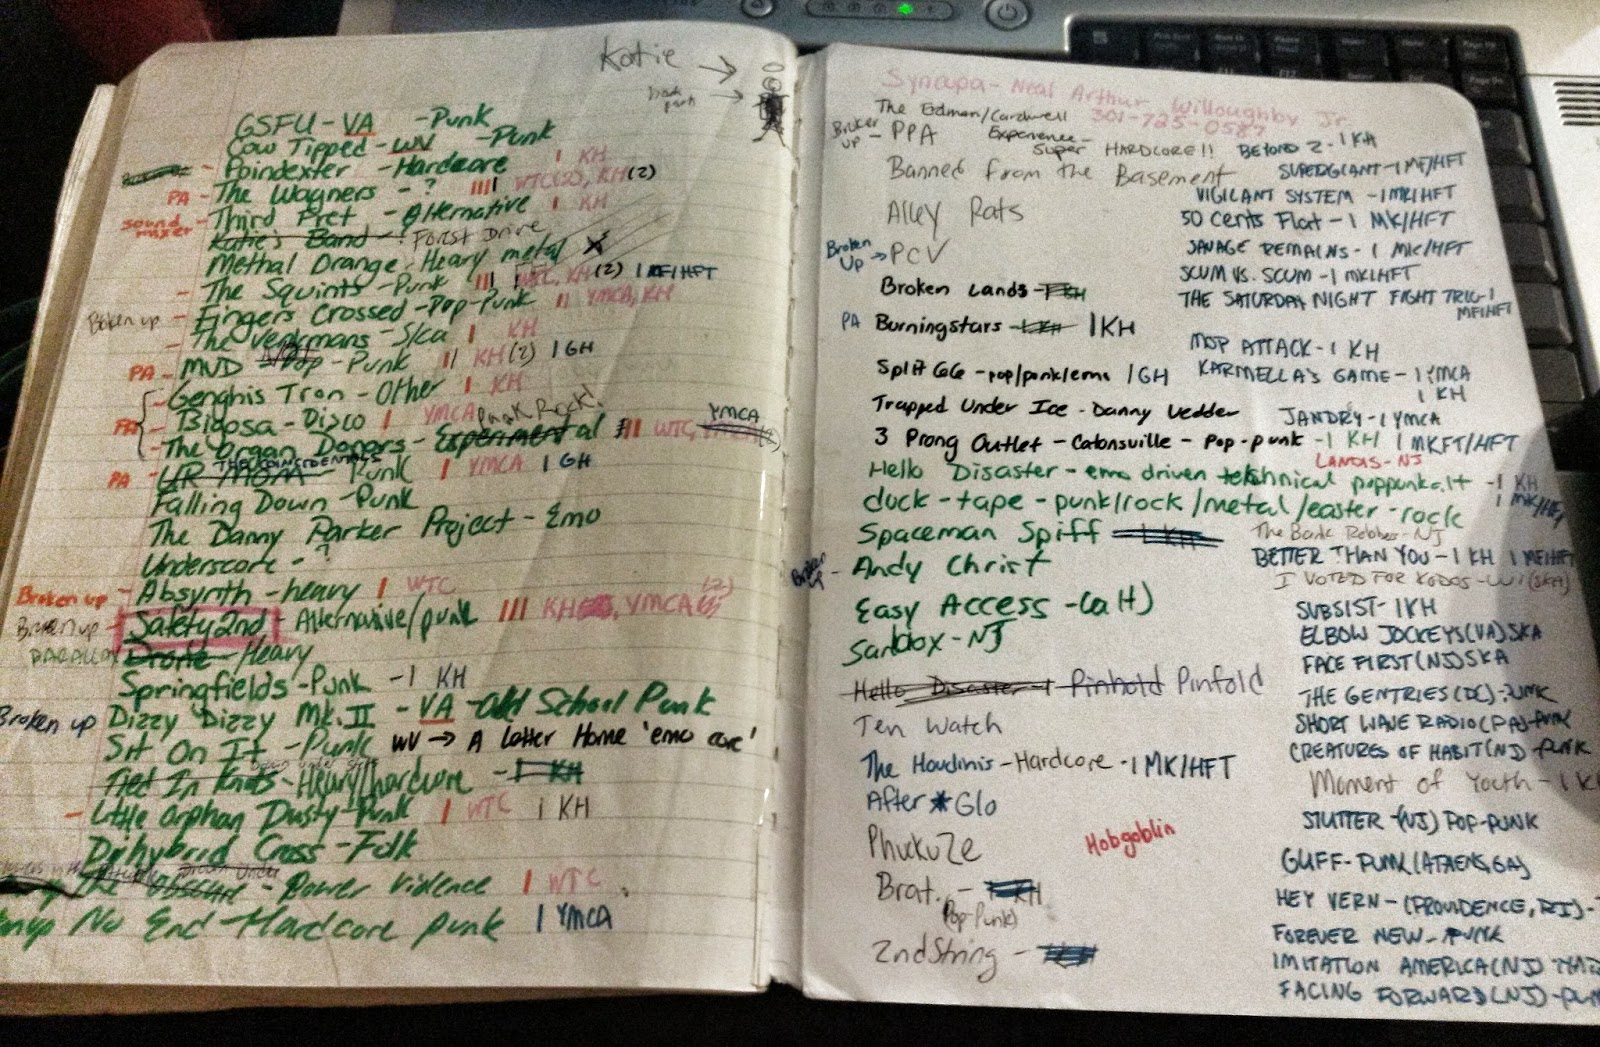 Katie →
GSFU - VA - Punk
Cow Tipped - WV - Punk
Poindexter - Hardcore I KH
PA - The Wagners - ? IIII WTC(2), KH(2)
sound mixer - Third Pret - Alternative I KH
Katie's Band - ! Forst Drive
Methal Orange - Heavy metal X
- The Squints - Punk III WTC, KH(2) I MF/HFT
Broken up - Fingers Crossed - Pop-Punk II YMCA, KH
- The Venkmans - Ska I KH
PA - MVD - Pop - Punk II KH(2) I GH
PA Genghis Tron - Other I KH
Bidosa - Disco I YMCA Punk Rock!
- The Organ Donors - Experimental III WTC, YMCA
PA - UR MOM THE COINSIDENTALS Punk I YMCA I GH
Falling Down - Punk
The Danny Parker Project - Emo
Underscore - ?
Broken up - Absynth - heavy I WTC
Broken up - Safety 2nd - Alternative/punk III KH, YMCA (2)
PARALLAX Drone - Heavy
Springfields - Punk - I KH
Broken up Dizzy Dizzy Mk. II - VA - Old School Punk
Sit On It - Punk WV → A Letter Home 'emo core'
Tied In Knots - Heavy/hardcore - I KH
- Little Orphan Dusty - Punk I WTC I KH
Dihybrid Cross - Folk
The Obscure - Power Violence I WTC
No End - Hardcore punk I YMCA
Syncupa - Neal Arthur Willoughby Jr.
301-725-0587
The Edman/Cardwell Experience - Super HARDCORE!!
Broken up - PPA
Banned From the Basement
Alley Rats
Broken Up → PCV
Broken Lands - I KH
PA Burningstars - I KH I KH
Split GG - pop/punk/emo I GH
Trapped Under Ice - Danny Vedder
3 Prong Outlet - Catonsville - Pop-punk - I KH I MKFT/HFT
Hello Disaster - emo driven tekhnical poppunkalt - I KH
duck-tape - punk/rock/metal/easter-rock I MK/HFT
Spaceman Spiff I KH
Broken up - Andy Christ
Easy Access - (alt)
Sandbox - NJ
Hello Disaster - I Pinhold Pinfold
Ten Watch
The Houdinis - Hardcore - I MK/HFT
After * Glo
PhuckuZe
Brat. - KH
(Pop-Punk)
2nd String -
Hobgoblin
BEYOND 2 - I KH
SUPERGIANT - I MF/HFT
VIGILANT SYSTEM - I MK/HFT
50 CENTS FLAT - I MK/HFT
SAVAGE REMAINS - I MK/HFT
SCUM VS. SCUM - I MK/HFT
THE SATURDAY NIGHT FIGHT TRIC - I MF/HFT
MOP ATTACK - I KH
KARMELLA'S GAME - I YMCA
I KH
JANDRY - I YMCA
LANDIS - NJ
The Bank Robbers - NJ
BETTER THAN YOU - I KH I MF/HFT
I VOTED FOR KODOS - WI (SKA)
SUBSIST - I KH
ELBOW JOCKEYS (VA) SKA
FACE FIRST (NJ) SKA
THE GENTRIES (DC) - PUNK
SHORT WAVE RADIO (PA) - PUNK
CREATURES OF HABIT (NJ) - PUNK
Moment of Youth - I KH
STUTTER - (NJ) POP-PUNK
GUFF - PUNK (ATHENS, GA)
HEY VERN - (PROVIDENCE, RI) -
FOREVER NEW - PUNK
IMITATION AMERICA (NJ)
FACING FORWARD (NJ) - PUNK